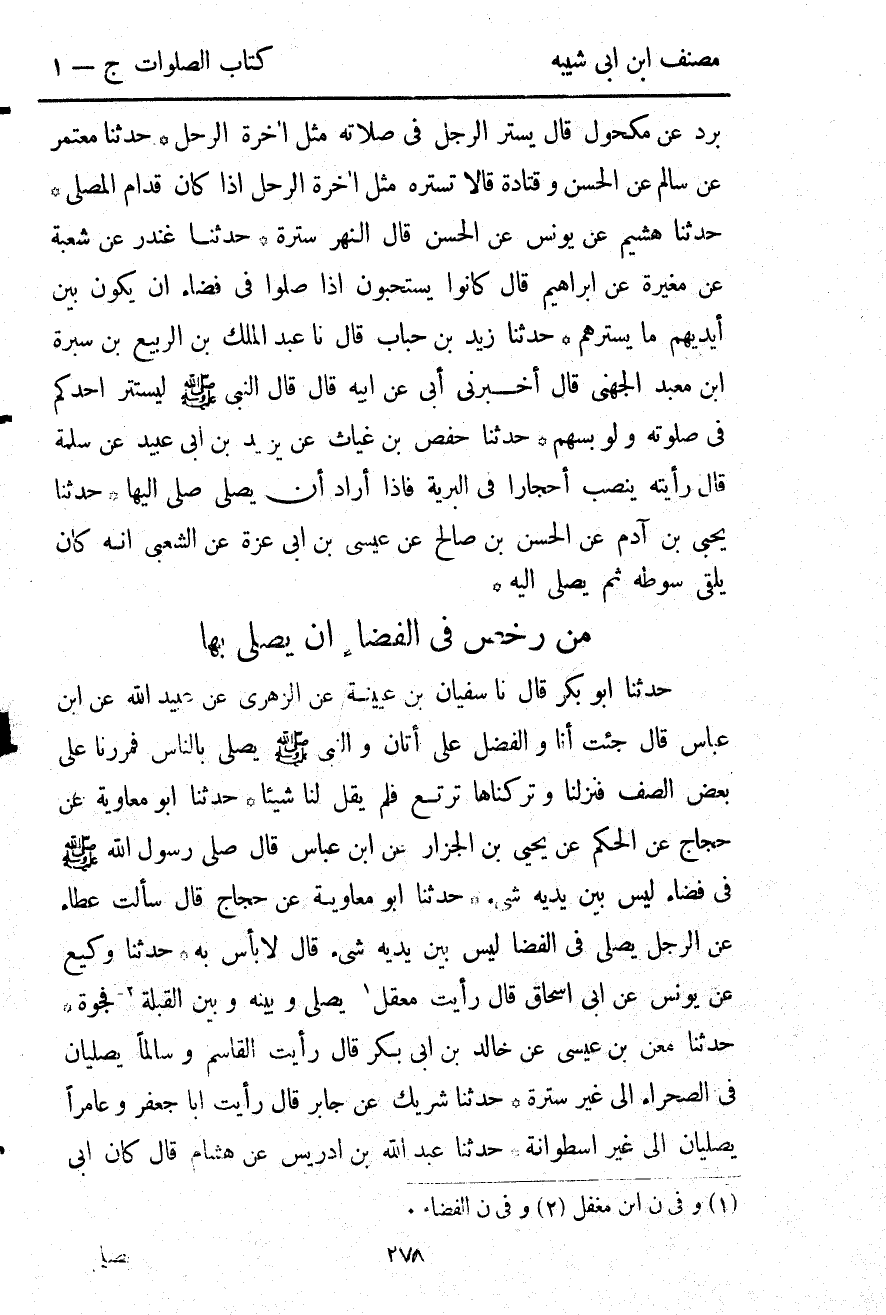 مصنف ابن ابى شيبه كتاب الصلوات ج — ١
برد عن مكحول قال يستر الرجل فى صلاته مثل اٰخرة الرحل * حدثنا معتمر
عن سالم عن الحسن و قتادة قالا تستره مثل اٰخرة الرحل اذا كان قدام المصلى *
حدثنا هشيم عن يونس عن الحسن قال النهر سترة * حدثنا غندر عن شعبة
عن مغيرة عن ابراهيم قال كانوا يستحبون اذا صلوا فى فضاء ان يكون بين
أيديهم ما يسترهم * حدثنا زيد بن حباب قال نا عبد الملك بن الربيع بن سبرة
ابن معبد الجهنى قال أخبرنى أبى عن ابيه قال قال النبى ﷺ ليستتر احدكم
فى صلوته و لو بسهم * حدثنا حفص بن غياث عن يزيد بن ابى عبيد عن سلمة
قال رأيته ينصب أحجارا فى البرية فاذا أراد أن يصلى صلى اليها * حدثنا
يحيى بن آدم عن الحسن بن صالح عن عيسى بن ابى عزة عن الشعبى انه كان
يلقى سوطه ثم يصلى اليه *
من رخص فى الفضاء ان يصلى بها
حدثنا ابو بكر قال نا سفيان بن عيينة عن الزهرى عن عبيد الله عن ابن
عباس قال جئت أنا و الفضل على أتان و النبى ﷺ يصلى بالناس فمررنا على
بعض الصف فنزلنا و تركناها ترتع فلم يقل لنا شيئا * حدثنا ابو معاوية عن
حجاج عن الحكم عن يحيى بن الجزار عن ابن عباس قال صلى رسول الله ﷺ
فى فضاء ليس بين يديه شىء * حدثنا ابو معاوية عن حجاج قال سألت عطاء
عن الرجل يصلى فى الفضا ليس بين يديه شىء قال لابأس به * حدثنا وكيع
عن يونس عن ابى اسحاق قال رأيت معقل١ يصلى و بينه و بين القبلة ٢-فجوة *
حدثنا معن بن عيسى عن خالد بن ابى بكر قال رأيت القاسم و سالماً يصليان
فى الصحراء الى غير سترة * حدثنا شريك عن جابر قال رأيت ابا جعفر و عامراً
يصليان الى غير اسطوانة * حدثنا عبد الله بن ادريس عن هشام قال كان ابى
(١) و فى ن ابن مغفل (٢) و فى ن الفضاء .
٢٧٨ يصلى